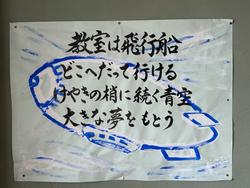 教室は飛行船
どこへだって行ける
けやきの梢に続く青空
大きな夢をもとう